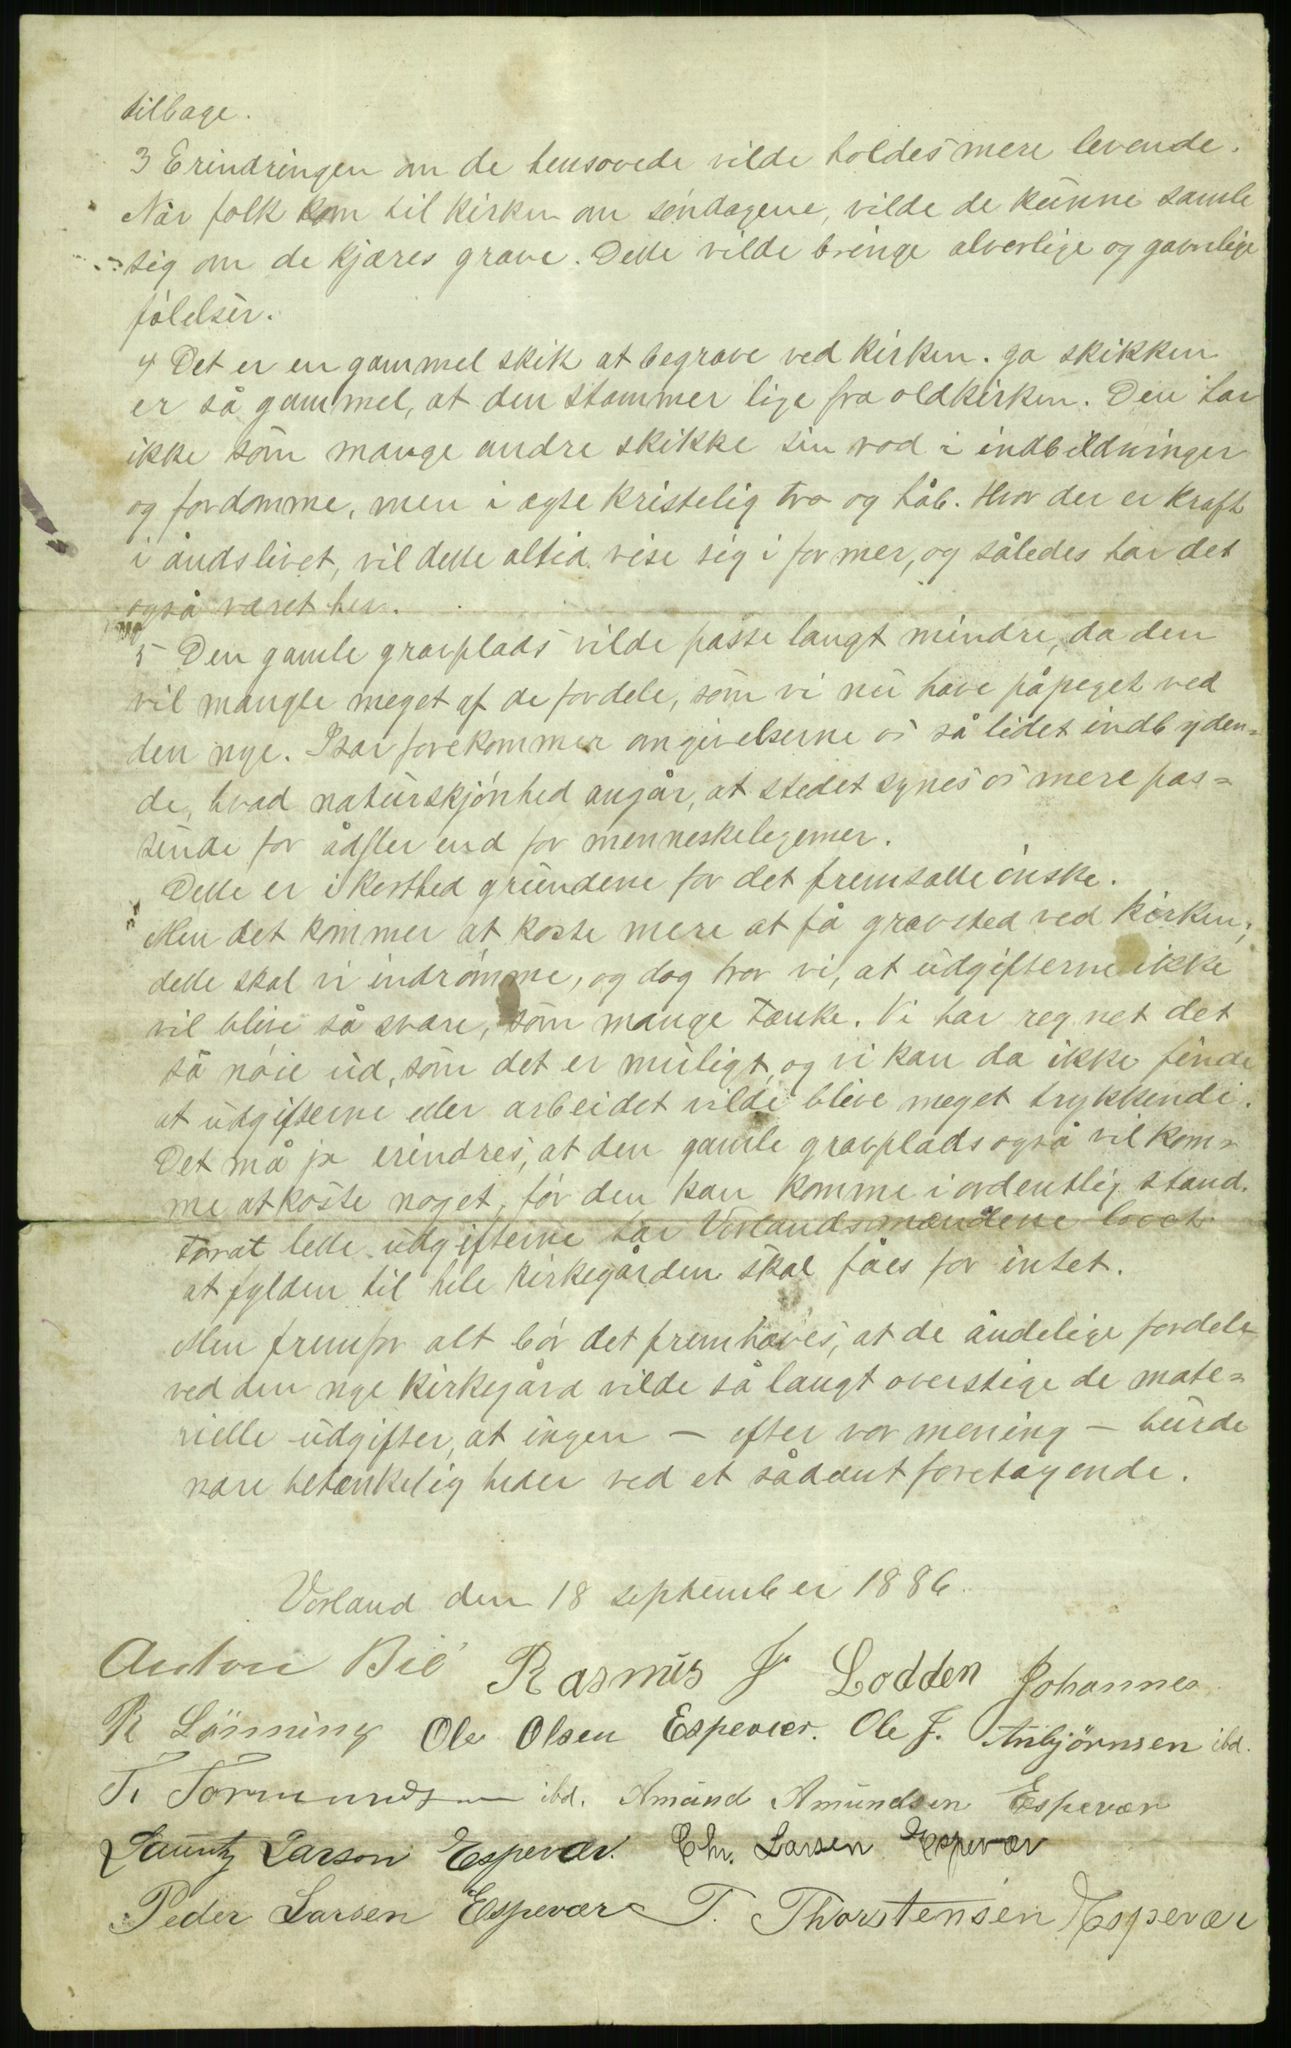 tilbage.
3 Erindringen om de hensovede vilde holdes mere levende.
Når folk kom til kirken om søndagene, vilde de kunne samle
sig om de kjæres grave. Dette vilde bringe alvorlige og gavnlige
følelser.
4 Det er en gammel skik at begrave ved kirken. ja skikken
er så gammel, at den stammer lige fra oldkirken. Den har
ikke som mange andre skikke sin rod i indbildninger
og fordomme, men i ægte kristelig tro og håb. Hvor der er kraft
i åndslivet, vil dette altid vise sig i former, og således har det
også været her.
5 Den gamle gravplads vilde passe langt mindre, da den
vil mangle meget af de fordele, som vi nu have påpeget ved
den nye. Især forekommer omgivelserne os så lidet indbyden-
de, hvad naturskjønhed angår, at stedet synes os mere pas-
sende for ådsler end for menneskelegemer.
Dette er i korthed grundene for det fremsatte ønske.
Men det kommer at koste mere at få gravsted ved kirken;
dette skal vi indrømme, og dog tror vi, at udgifterne ikke
vil blive så svære, som mange tænke. Vi har regnet det
så nøie ud, som det er muligt, og vi kan da ikke finde
at udgifterne eller arbeidet vilde blive meget trykkende.
Det må jo erindres, at den gamle gravplads også vil kom-
me at koste noget, før den kan komme i ordentlig stand.
For at lette udgifterne har Vorlandsmændene lovet
at fylden til hele kirkegården skal fåes for intet.
Men fremfor alt bør det fremhæves, at de åndelige fordele
ved den nye kirkegård vilde så langt overstige de mate-
rielle udgifter, at ingen - efter vor mening - burde
nære betænkeligheder ved et sådant foretagende.
Vorland den 18 september 1886.
Anton Bie Rasmus J. Lodden Johannes
R Lønning Ole Olsen Espevær. Ole J. Anbjørnsen ibd.
T. Tormundsen ibd. Amund Amundsen Espevær
Lauritz Larson Espevær. Chr. Larsen Espevær
Peder Larsen Espevær T. Thorstensen Espevær